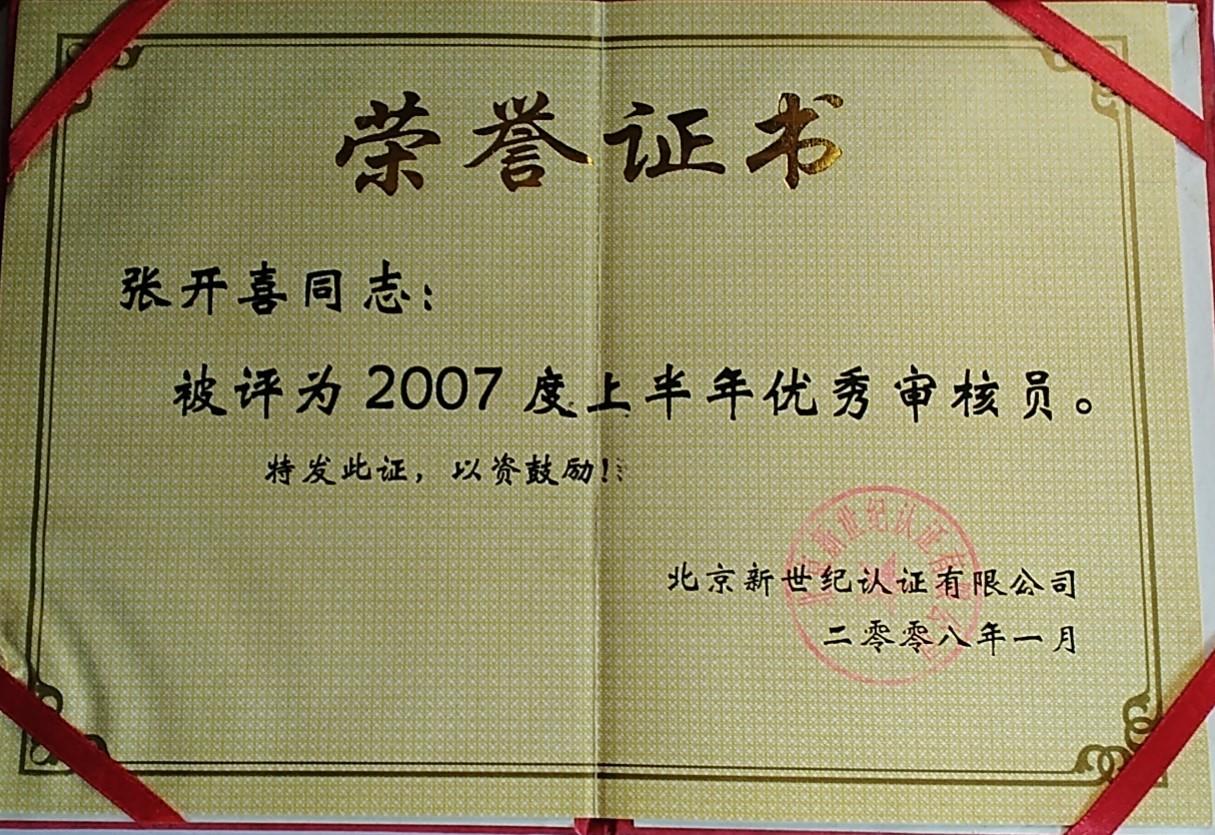 荣誉证书
张开喜同志：
被评为2007度上半年优秀审核员。
特发此证，以资鼓励！
北京新世纪认证有限公司
北京新世纪认证有限公司
二零零八年一月